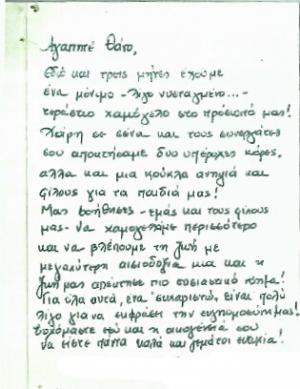 Αγαπητέ Θάνο,
Εδώ και τρεις μήνες έχουμε
ένα μόνιμο - λίγο νυσταγμένο...-
τεράστιο χαμόγελο στο πρόσωπό μας!
Χάρη σε σένα και τους συνεργάτες
σου αποκτήσαμε δυο υπέροχες κόρες,
αλλα και μια κούκλα ανηψιά και
φίλους για τα παιδιά μας!
Μας βοήθησες - εμάς και τους φίλους
μας - να χαμογελάμε περισσότερο
και να βλέπουμε τη ζωή με
μεγαλύτερη αισιοδοξία μια και η
ζωή μας απέκτησε πιο ουσιαστικό νόημα!
Για όλα αυτά, ένα "ευχαριστώ", είναι πολύ
λίγο για να εκφράσει την ευγνωμοσύνη μας!
Ευχόμαστε εσύ και η οικογένειά σου
να είστε πάντα καλά και γεμάτοι ευτυχία!